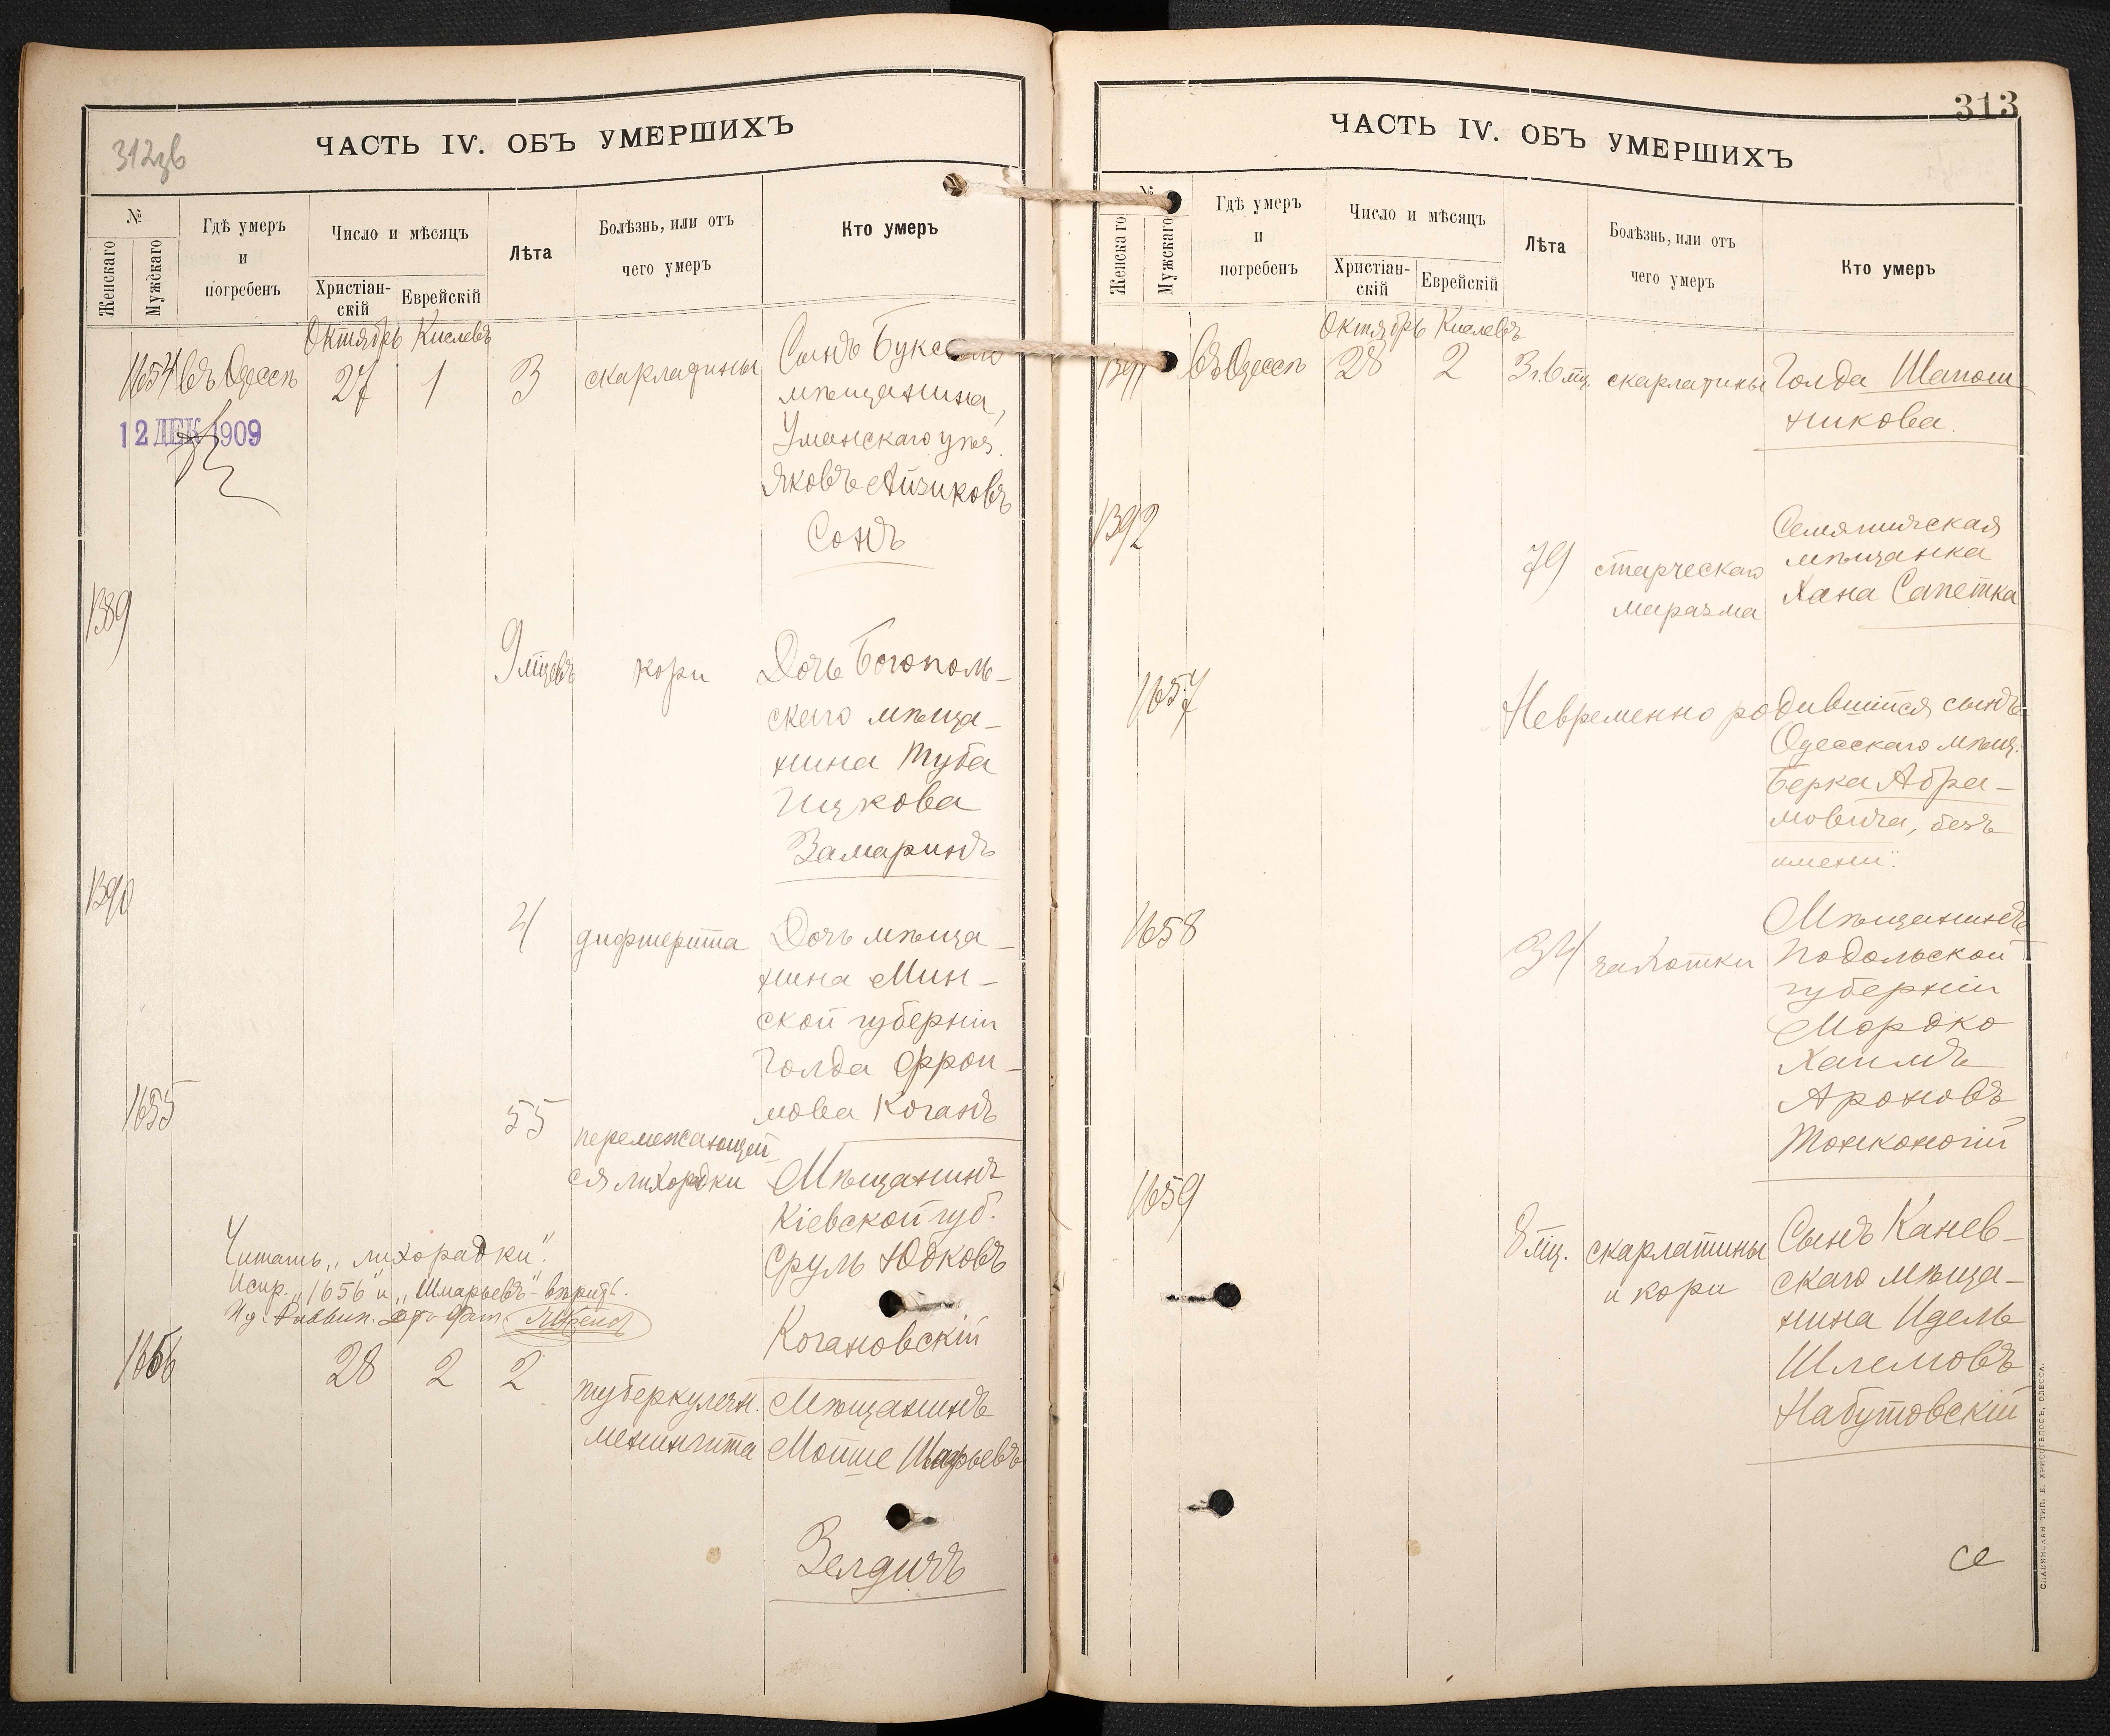 312зв
ЧАСТЬ IV. ОБЪ УМЕРШИХЪ
№
Женскаго
Мужскаго
Гдѣ умеръ
и
погребенъ
Число и мѣсяцъ
Христіан-
скій
Еврейскій
Лѣта
Болѣзнь, или отъ
чего умеръ
Кто умеръ
Октябрь Кислевъ
1654 въ Одессѣ 27 1 3 скарлатины Сынъ
мѣщанина,
Уманскаго уѣз.
Яковъ Айзиковъ
Сонъ
12 ДЕК 1909
1389
9 мцевъ кори Дочь Богополь-
скаго мѣща-
нина Туба
Ицкова
Замаринъ
1390
4 дифтерита Дочь мѣща-
нина Мин-
ской губерніи
Голда Фрои-
мова Коганъ
1655
55 перемежающей
ся лихорадки Мѣщанинъ
Кіевской губ.
Сруль Юдковъ
Когановскій
Читать „лихорадки".
Испр. „1656" и „Шмарьевъ" - вѣрить.
1656 28 2 2 туберкулезн. Мѣщанинъ
менингита Мойше Шмарьевъ
Зелдичъ
313
ЧАСТЬ IV. ОБЪ УМЕРШИХЪ
№
Женскаго
Мужскаго
Гдѣ умеръ
и
погребенъ
Число и мѣсяцъ
Христіан-
скій
Еврейскій
Лѣта
Болѣзнь, или отъ
чего умеръ
Кто умеръ
Октябрь Кислевъ
1391 въ Одессѣ 28 2 3 г. 6 мц. скарлатины Голда Шапош-
никова.
1392
79 старческаго
маразма
Семятичская
мѣщанка
Хана Сапетка
1657
Невременно родившійся сынъ
Одесскаго мѣщ.
Берка Абра-
мовича, безъ
имени.
1658
34 чахотки
Мѣщанинъ
Подольской
губерніи
Мордко
Хаимъ
Ароновъ
Тонконогій
1659
8 мц. скарлатины
и кори
Сынъ Канев-
скаго мѣща-
нина Идель
Шлемовъ
Набутовскій
СЛАВЯНСКАЯ ТИП. Е. ХРИСОГЕЛОСЪ, ОДЕССА.